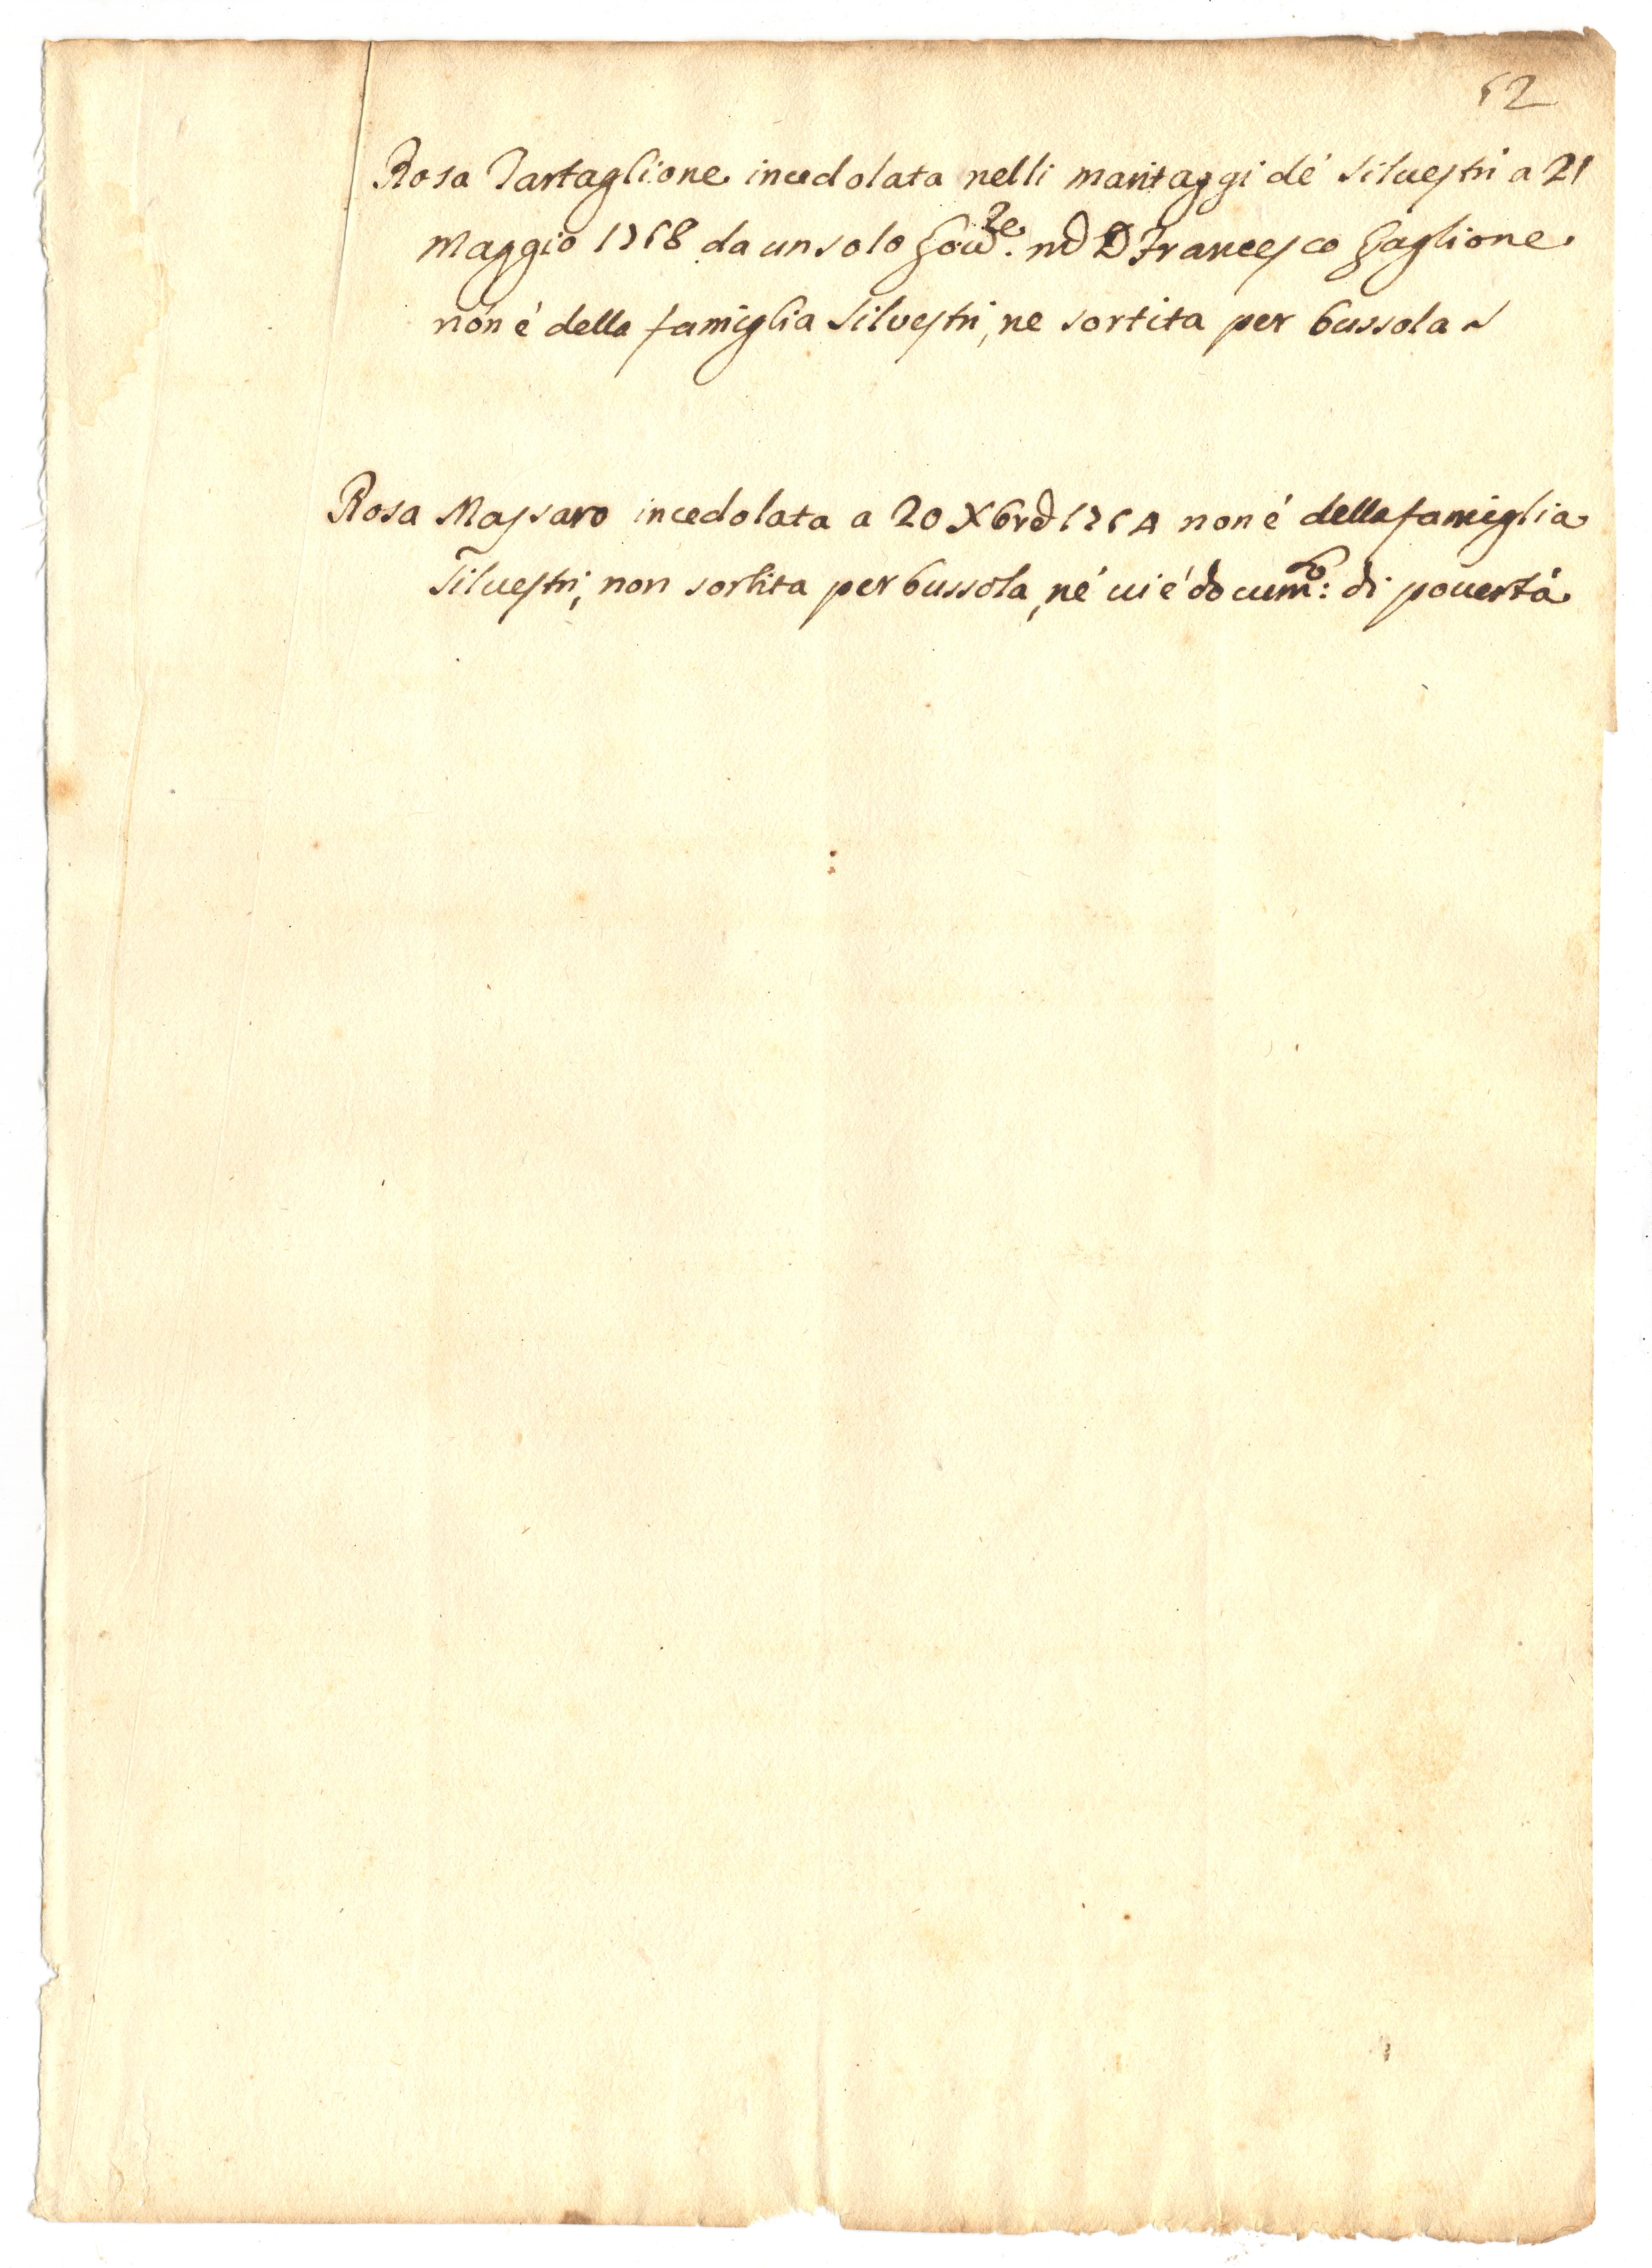 62
Rosa Tartaglione incedolata nelli maritaggi de' Silvestri a 21
Maggio 1768 da un solo Gov.re D Francesco Gaglione
non é della famiglia Silvestri, ne sortita per bussola
Rosa Massaro incedolata a 20 Xbre 1764 non é della famiglia
Silvestri, non sortita per bussola, né vi é docum.to: di povertá